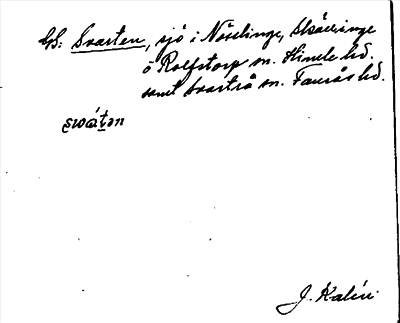 GS: Svarten, sjö i Nösslinge, Skällinge
o Rolfstorp sn. Himle hd.
samt Svartrå sn. Faurås hd.
swátən
J. Kalén